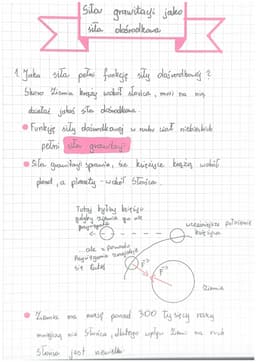 Siła grawitacji jako
siła dośrodkowa
1. Jaka siła pełni funkcję siły dośrodkowej?
Skoro Ziemia krąży wokół słońca, musi na nią
działać jakaś siła dośrodkowa.
Funkcję siły dośrodkowej w ruchu ciał niebieskich
pełni siła grawitacji
Siła grawitacji sprawia, że księżyce krążą wokół
planet, a planety - wokół Słońca.
Tutaj byłby księżyc
gdyby ziemia go nie
przyciągała
wcześniejsze położenie
księżyca
...ale z powodu
przyciągania znajduje
się tutaj
F
F
Ziemia
Ziemia ma masę ponad 300 tysięcy razy
mniejszą niż Słońce, dlatego wpływ Ziemi na ruch
Słońca jest niewielki